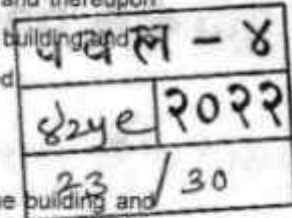 and thereupon
building and
पवल - ४
d
४२५९ २०२२
23 / 30
e building and